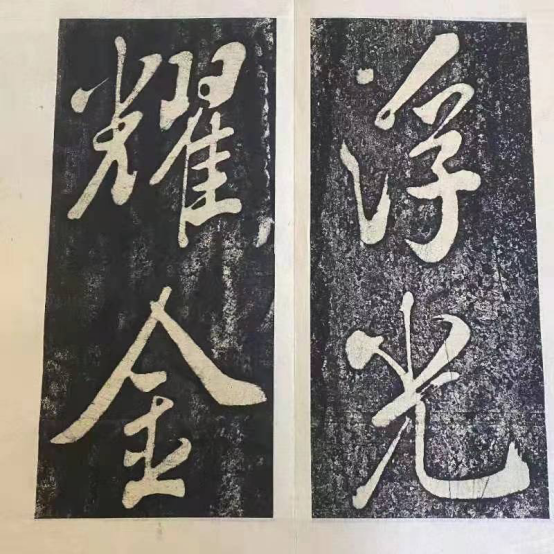 浮光
耀金